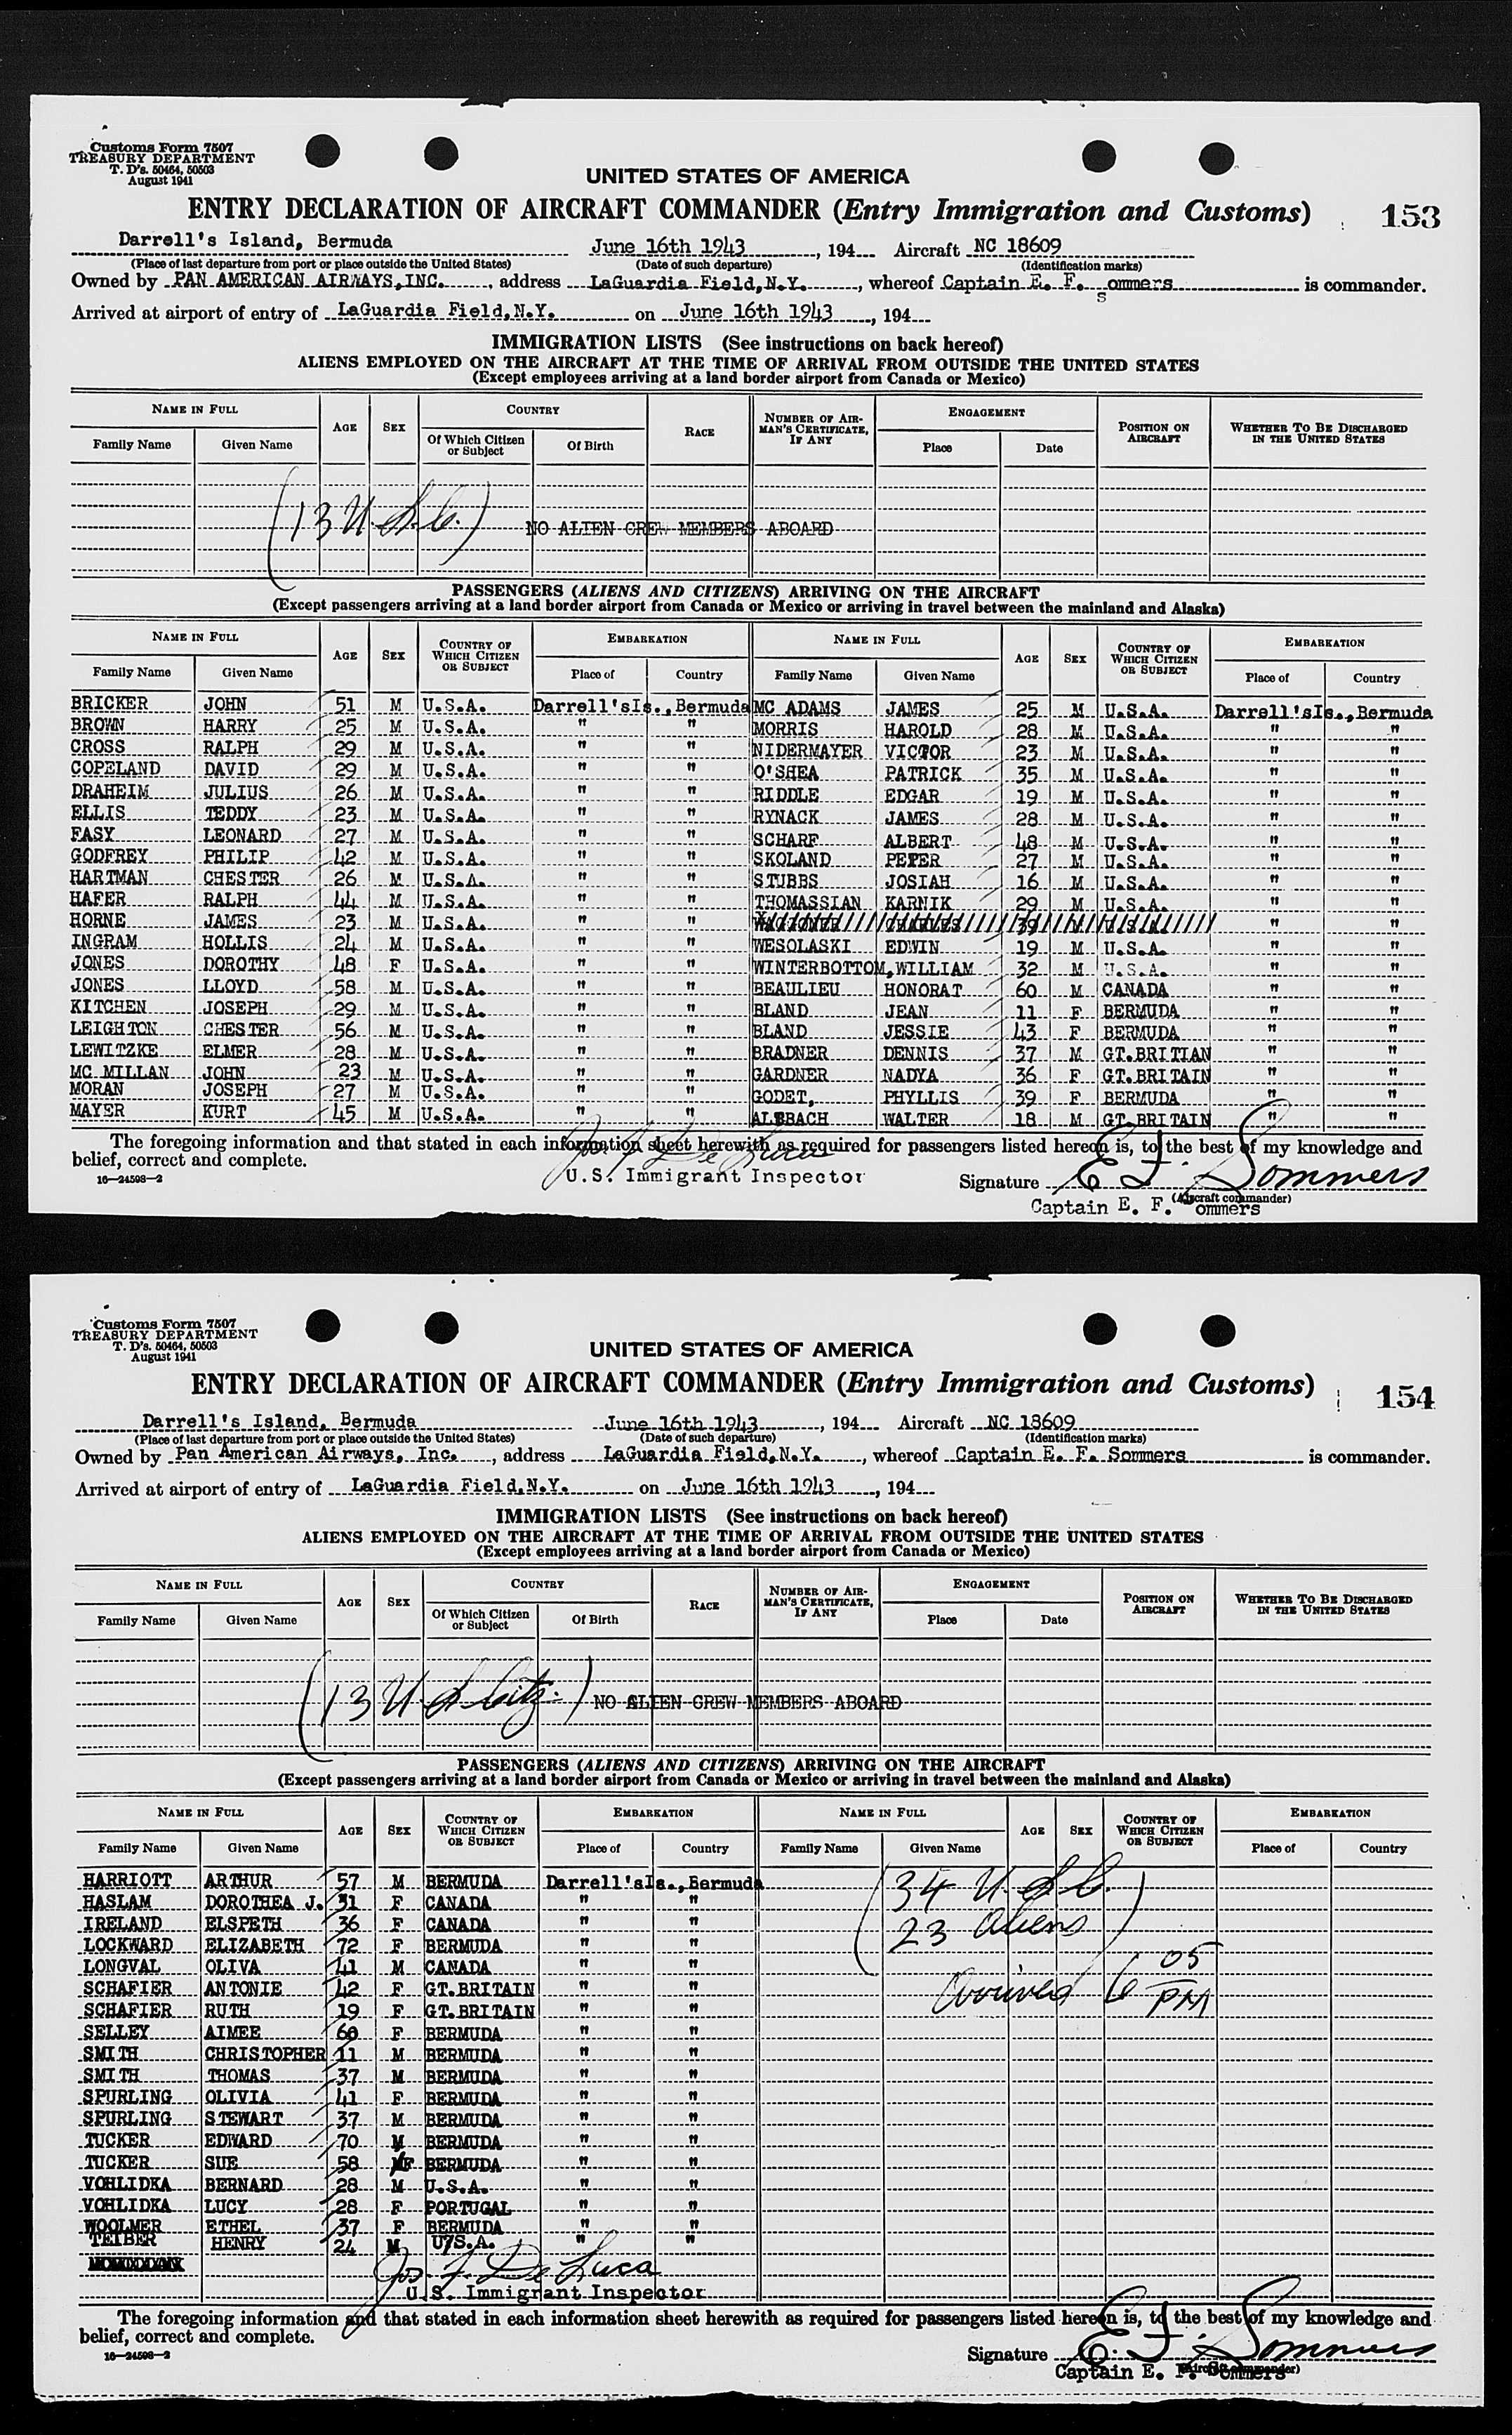 Customs Form 7507
TREASURY DEPARTMENT
T. D's. 50464, 50503
August 1941
UNITED STATES OF AMERICA
ENTRY DECLARATION OF AIRCRAFT COMMANDER (Entry Immigration and Customs) 153
Darrell's Island, Bermuda June 16th 1943, 194 Aircraft NC 18609
(Place of last departure from port or place outside the United States) (Date of such departure) (Identification marks)
Owned by PAN AMERICAN AIRWAYS, INC., address LaGuardia Field, N.Y., whereof Captain E. F. Sommers is commander.
Arrived at airport of entry of LaGuardia Field, N.Y. on June 16th 1943, 194
IMMIGRATION LISTS (See instructions on back hereof)
ALIENS EMPLOYED ON THE AIRCRAFT AT THE TIME OF ARRIVAL FROM OUTSIDE THE UNITED STATES
(Except employees arriving at a land border airport from Canada or Mexico)
NAME IN FULL AGE SEX COUNTRY RACE NUMBER OF AIRMAN'S CERTIFICATE, IF ANY ENGAGEMENT POSITION ON AIRCRAFT WHETHER TO BE DISCHARGED IN THE UNITED STATES
Family Name Given Name Of Which Citizen or Subject Of Birth Place Date
(13 U.S.C.) NO ALIEN CREW MEMBERS ABOARD
PASSENGERS (ALIENS AND CITIZENS) ARRIVING ON THE AIRCRAFT
(Except passengers arriving at a land border airport from Canada or Mexico or arriving in travel between the mainland and Alaska)
NAME IN FULL AGE SEX COUNTRY OF WHICH CITIZEN OR SUBJECT EMBARKATION NAME IN FULL AGE SEX COUNTRY OF WHICH CITIZEN OR SUBJECT EMBARKATION
Family Name Given Name Place of Country Family Name Given Name Place of Country
BRICKER JOHN 51 M U.S.A. Darrell'sIs., Bermuda MC ADAMS JAMES 25 M U.S.A. Darrell'sIs., Bermuda
BROWN HARRY 25 M U.S.A. " " MORRIS HAROLD 28 M U.S.A. " "
CROSS RALPH 29 M U.S.A. " " NIDERMAYER VICTOR 23 M U.S.A. " "
COPELAND DAVID 29 M U.S.A. " " O'SHEA PATRICK 35 M U.S.A. " "
DRAHEIM JULIUS 26 M U.S.A. " " RIDDLE EDGAR 19 M U.S.A. " "
ELLIS TEDDY 23 M U.S.A. " " RYNACK JAMES 28 M U.S.A. " "
FASY LEONARD 27 M U.S.A. " " SCHARF ALBERT 48 M U.S.A. " "
GODFREY PHILIP 42 M U.S.A. " " SKOLAND PETER 27 M U.S.A. " "
HARTMAN CHESTER 26 M U.S.A. " " STUBBS JOSIAH 16 M U.S.A. " "
HAFER RALPH 44 M U.S.A. " " THOMASSIAN KARNIK 29 M U.S.A. " "
HORNE JAMES 23 M U.S.A. " " CHARLES 39 M U.S.A. " "
INGRAM HOLLIS 24 M U.S.A. " " WESOLASKI EDWIN 19 M U.S.A. " "
JONES DOROTHY 48 F U.S.A. " " WINTERBOTTOM, WILLIAM 32 M U.S.A. " "
JONES LLOYD 58 M U.S.A. " " BEAULIEU HONORAT 60 M CANADA " "
KITCHEN JOSEPH 29 M U.S.A. " " BLAND JEAN 11 F BERMUDA " "
LEIGHTON CHESTER 56 M U.S.A. " " BLAND JESSIE 43 F BERMUDA " "
LEWITZKE ELMER 28 M U.S.A. " " BRADNER DENNIS 37 M GT.BRITIAN " "
MC MILLAN JOHN 23 M U.S.A. " " GARDNER NADYA 36 F GT.BRITAIN " "
MORAN JOSEPH 27 M U.S.A. " " GODET, PHYLLIS 39 F BERMUDA " "
MAYER KURT 45 M U.S.A. " " WALTER 18 M GT.BRITAIN " "
The foregoing information and that stated in each information sheet herewith as required for passengers listed hereon is, to the best of my knowledge and
belief, correct and complete.
16—24598—2
Jos. F. De Luca
U.S. Immigrant Inspector
Signature E. F. Sommers
(Aircraft commander)
Captain E. F. ommers
Customs Form 7507
TREASURY DEPARTMENT
T. D's. 50464, 50503
August 1941
UNITED STATES OF AMERICA
ENTRY DECLARATION OF AIRCRAFT COMMANDER (Entry Immigration and Customs) 154
Darrell's Island, Bermuda June 16th 1943, 194 Aircraft NC 18609
(Place of last departure from port or place outside the United States) (Date of such departure) (Identification marks)
Owned by Pan American Airways, Inc., address LaGuardia Field, N.Y., whereof Captain E. F. Sommers is commander.
Arrived at airport of entry of LaGuardia Field, N.Y. on June 16th 1943, 194
IMMIGRATION LISTS (See instructions on back hereof)
ALIENS EMPLOYED ON THE AIRCRAFT AT THE TIME OF ARRIVAL FROM OUTSIDE THE UNITED STATES
(Except employees arriving at a land border airport from Canada or Mexico)
NAME IN FULL AGE SEX COUNTRY RACE NUMBER OF AIRMAN'S CERTIFICATE, IF ANY ENGAGEMENT POSITION ON AIRCRAFT WHETHER TO BE DISCHARGED IN THE UNITED STATES
Family Name Given Name Of Which Citizen or Subject Of Birth Place Date
(13 U.S Citz.) NO ALIEN CREW MEMBERS ABOARD
PASSENGERS (ALIENS AND CITIZENS) ARRIVING ON THE AIRCRAFT
(Except passengers arriving at a land border airport from Canada or Mexico or arriving in travel between the mainland and Alaska)
NAME IN FULL AGE SEX COUNTRY OF WHICH CITIZEN OR SUBJECT EMBARKATION NAME IN FULL AGE SEX COUNTRY OF WHICH CITIZEN OR SUBJECT EMBARKATION
Family Name Given Name Place of Country Family Name Given Name Place of Country
HARRIOTT ARTHUR 57 M BERMUDA Darrell'sIs., Bermuda (34 U.S.C.
HASLAM DOROTHEA J. 31 F CANADA " "
IRELAND ELSPETH 36 F CANADA " " 23 aliens)
LOCKWARD ELIZABETH 72 F BERMUDA " "
LONGVAL OLIVA 41 M CANADA " "
SCHAFIER ANTONIE 42 F GT.BRITAIN " " Arrived 6 05 PM
SCHAFIER RUTH 19 F GT.BRITAIN " "
SELLEY AIMEE 60 F BERMUDA " "
SMITH CHRISTOPHER 11 M BERMUDA " "
SMITH THOMAS 37 M BERMUDA " "
SPURLING OLIVIA 41 F BERMUDA " "
SPURLING STEWART 37 M BERMUDA " "
TUCKER EDWARD 70 M BERMUDA " "
TUCKER SUE 58 F BERMUDA " "
VOHLIDKA BERNARD 28 M U.S.A. " "
VOHLIDKA LUCY 28 F PORTUGAL " "
WOOLMER ETHEL 37 F BERMUDA " "
TEIBER HENRY 24 M U/S.A. " "
Jos. F. De Luca
U.S. Immigrant Inspector
The foregoing information and that stated in each information sheet herewith as required for passengers listed hereon is, to the best of my knowledge and
belief, correct and complete.
16—24598—2
Signature E. F. Sommers
Captain E. F. Sommers